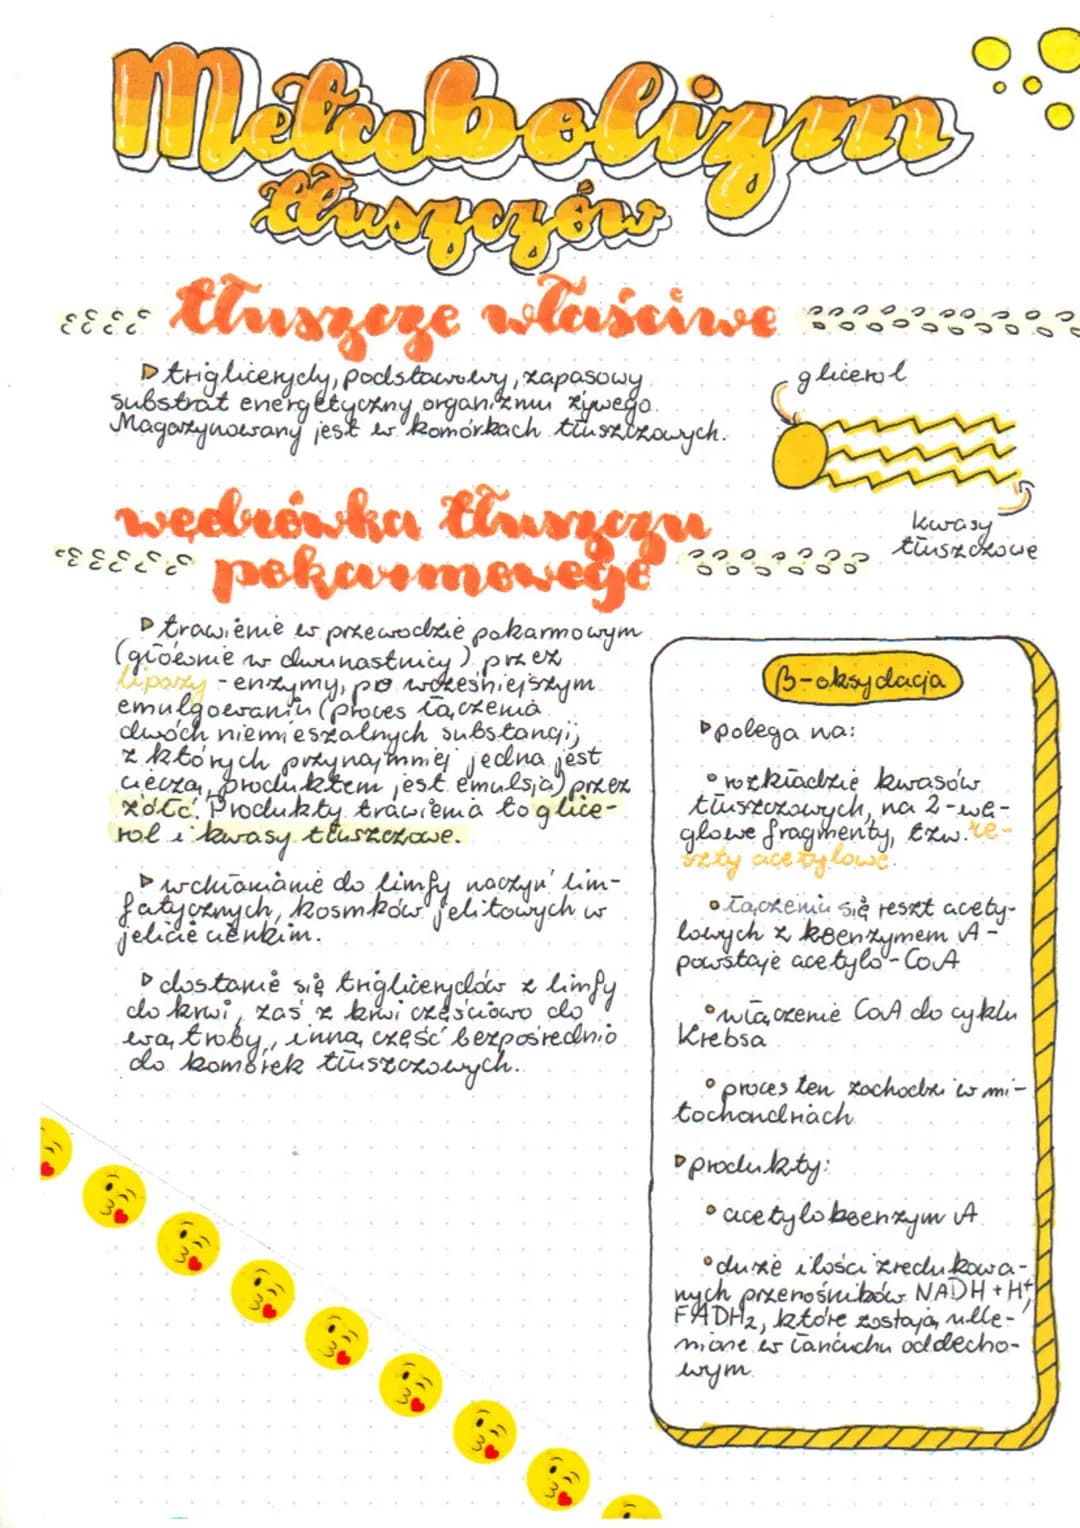 Metabolizm
tłuszczów
tłuszcze właściwe
▷ triglicerydy, podstawowy, zapasowy
substrat energetyczny organizmu żywego.
Magazynowany jest w komórkach tłuszczowych.
glicerol
kwasy
tłuszczowe
wędrówka tłuszczu
pokarmowego
▷ trawienie w przewodzie pokarmowym
(głównie w dwunastnicy) przez
lipazy - enzymy, po wcześniejszym
emulgowaniu (proces łączenia
dwóch niemieszalnych substancji,
z których przynajmniej jedna jest
cieczą, produktem jest emulsja) przez
żółć. Produkty trawienia to glice-
rol i kwasy tłuszczowe.
▷ wchłanianie do limfy naczyń lim-
fatycznych, kosmków jelitowych w
jelicie cienkim.
▷ dostanie się triglicerydów z limfy
do krwi, zaś z krwi częściowo do
wątroby, inna część bezpośrednio
do komórek tłuszczowych.
β-oksydacja
▷ polega na:
• rozkładzie kwasów
tłuszczowych, na 2-wę-
glowe fragmenty, tzw. re-
szty acetylowe.
• łączeniu się reszt acety-
lowych z koenzymem A -
powstaje acetylo-CoA
• włączenie CoA do cyklu
Krebsa
• proces ten zachodzi w mi-
tochondriach
▷ produkty:
• acetylokoenzym A
• duże ilości zredukowa-
nych przenośników NADH + H⁺,
FADH₂, które zostają utle-
nione w łańcuchu oddecho-
wym